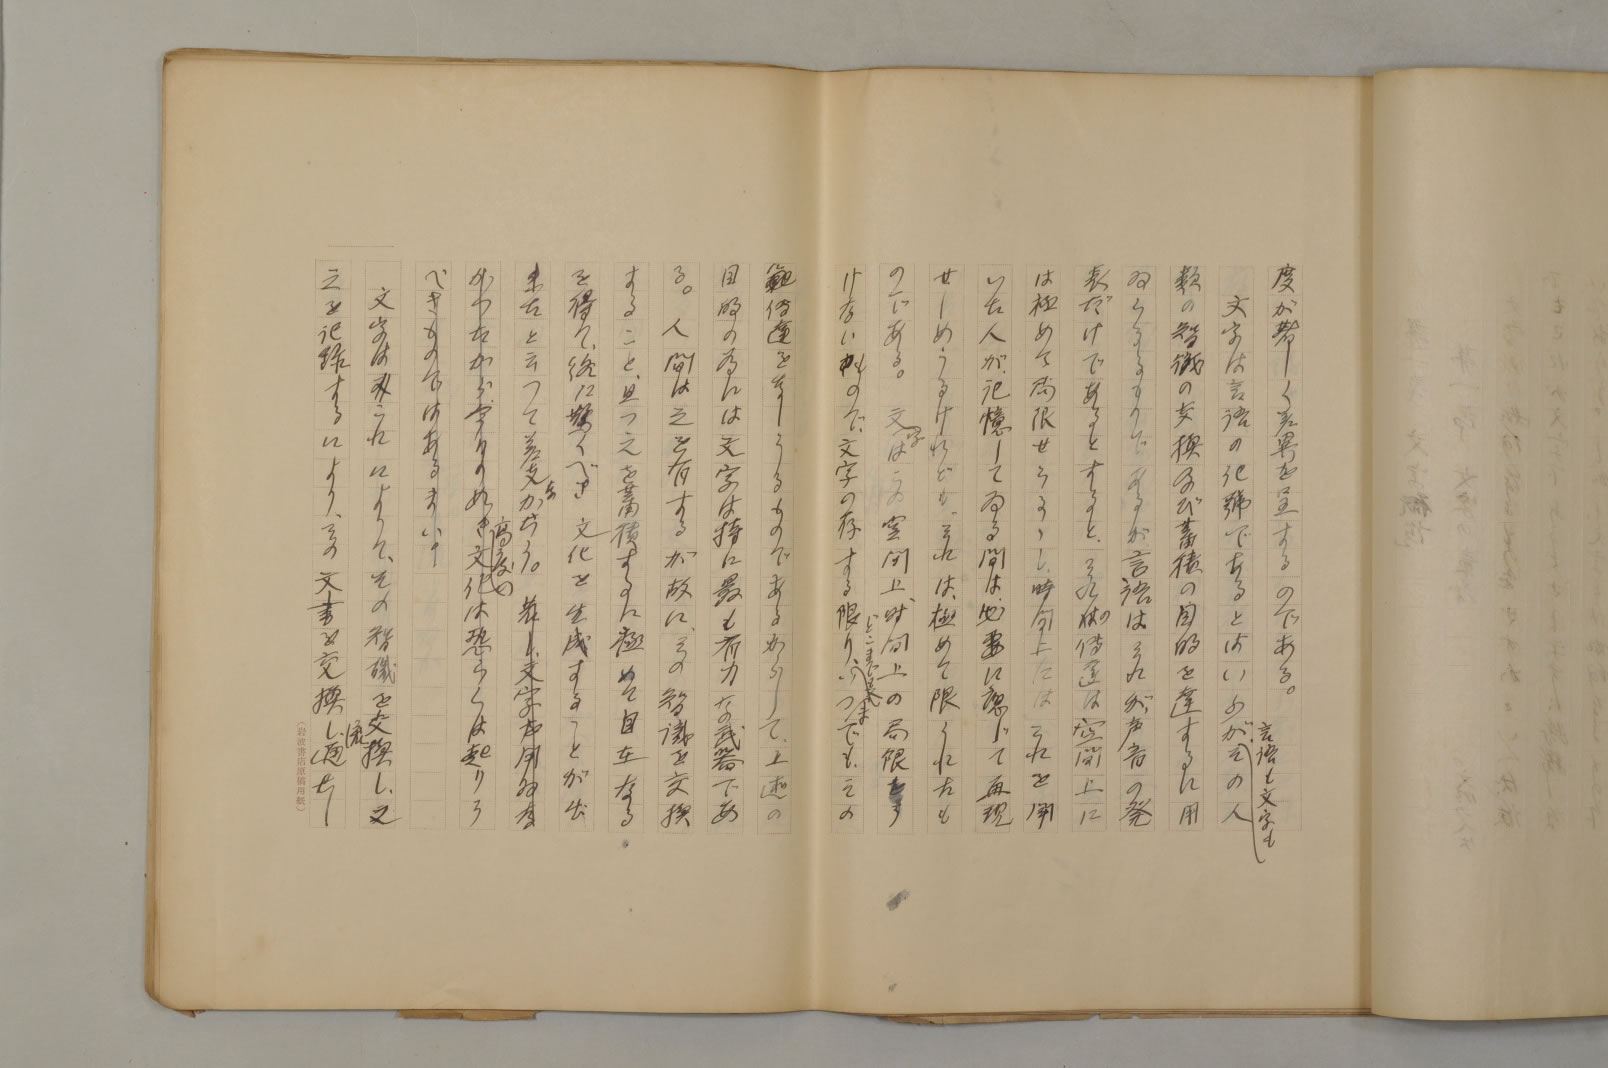 度が著しく差異を呈するのである。
文字は言語の記號であるとはいふが、その人
言語も文字も
類の智識の交換及び蓄積の目的を達するに用
ゐらるるものであるが言語はそれが声音の発
表だけであるとすると、その傳達は空間上に
は極めて局限せらるゝし、時間上にはこれを聞
いた人が、記憶してゐる間は、必要に應じて再現
せしめうるけれども、それは、極めて限られたも
のである。文字はこの空間上、時間上の局限をう
けないもので、文字の存する限り、いつでも、その
どこまでも
範傳達をなしうるものであるからして、上述の
目的の為には文字は特に最も有力な武器であ
る。人間は之を有するが故に、その智識を交換
すること、且つ之を蓄積するに極めて自在なる
を得て、終に驚くべき文化を生成することが出
來たと云つて差支がなからう。若し、文字
かつたならば、今日の如き高度の文化は恐らくは起りう
べきものではあるまい。
文字はこれによりて、その智識を交換し、又
之を記録するにより、その文書を交換し、流通せし
(岩波書店原稿用紙)